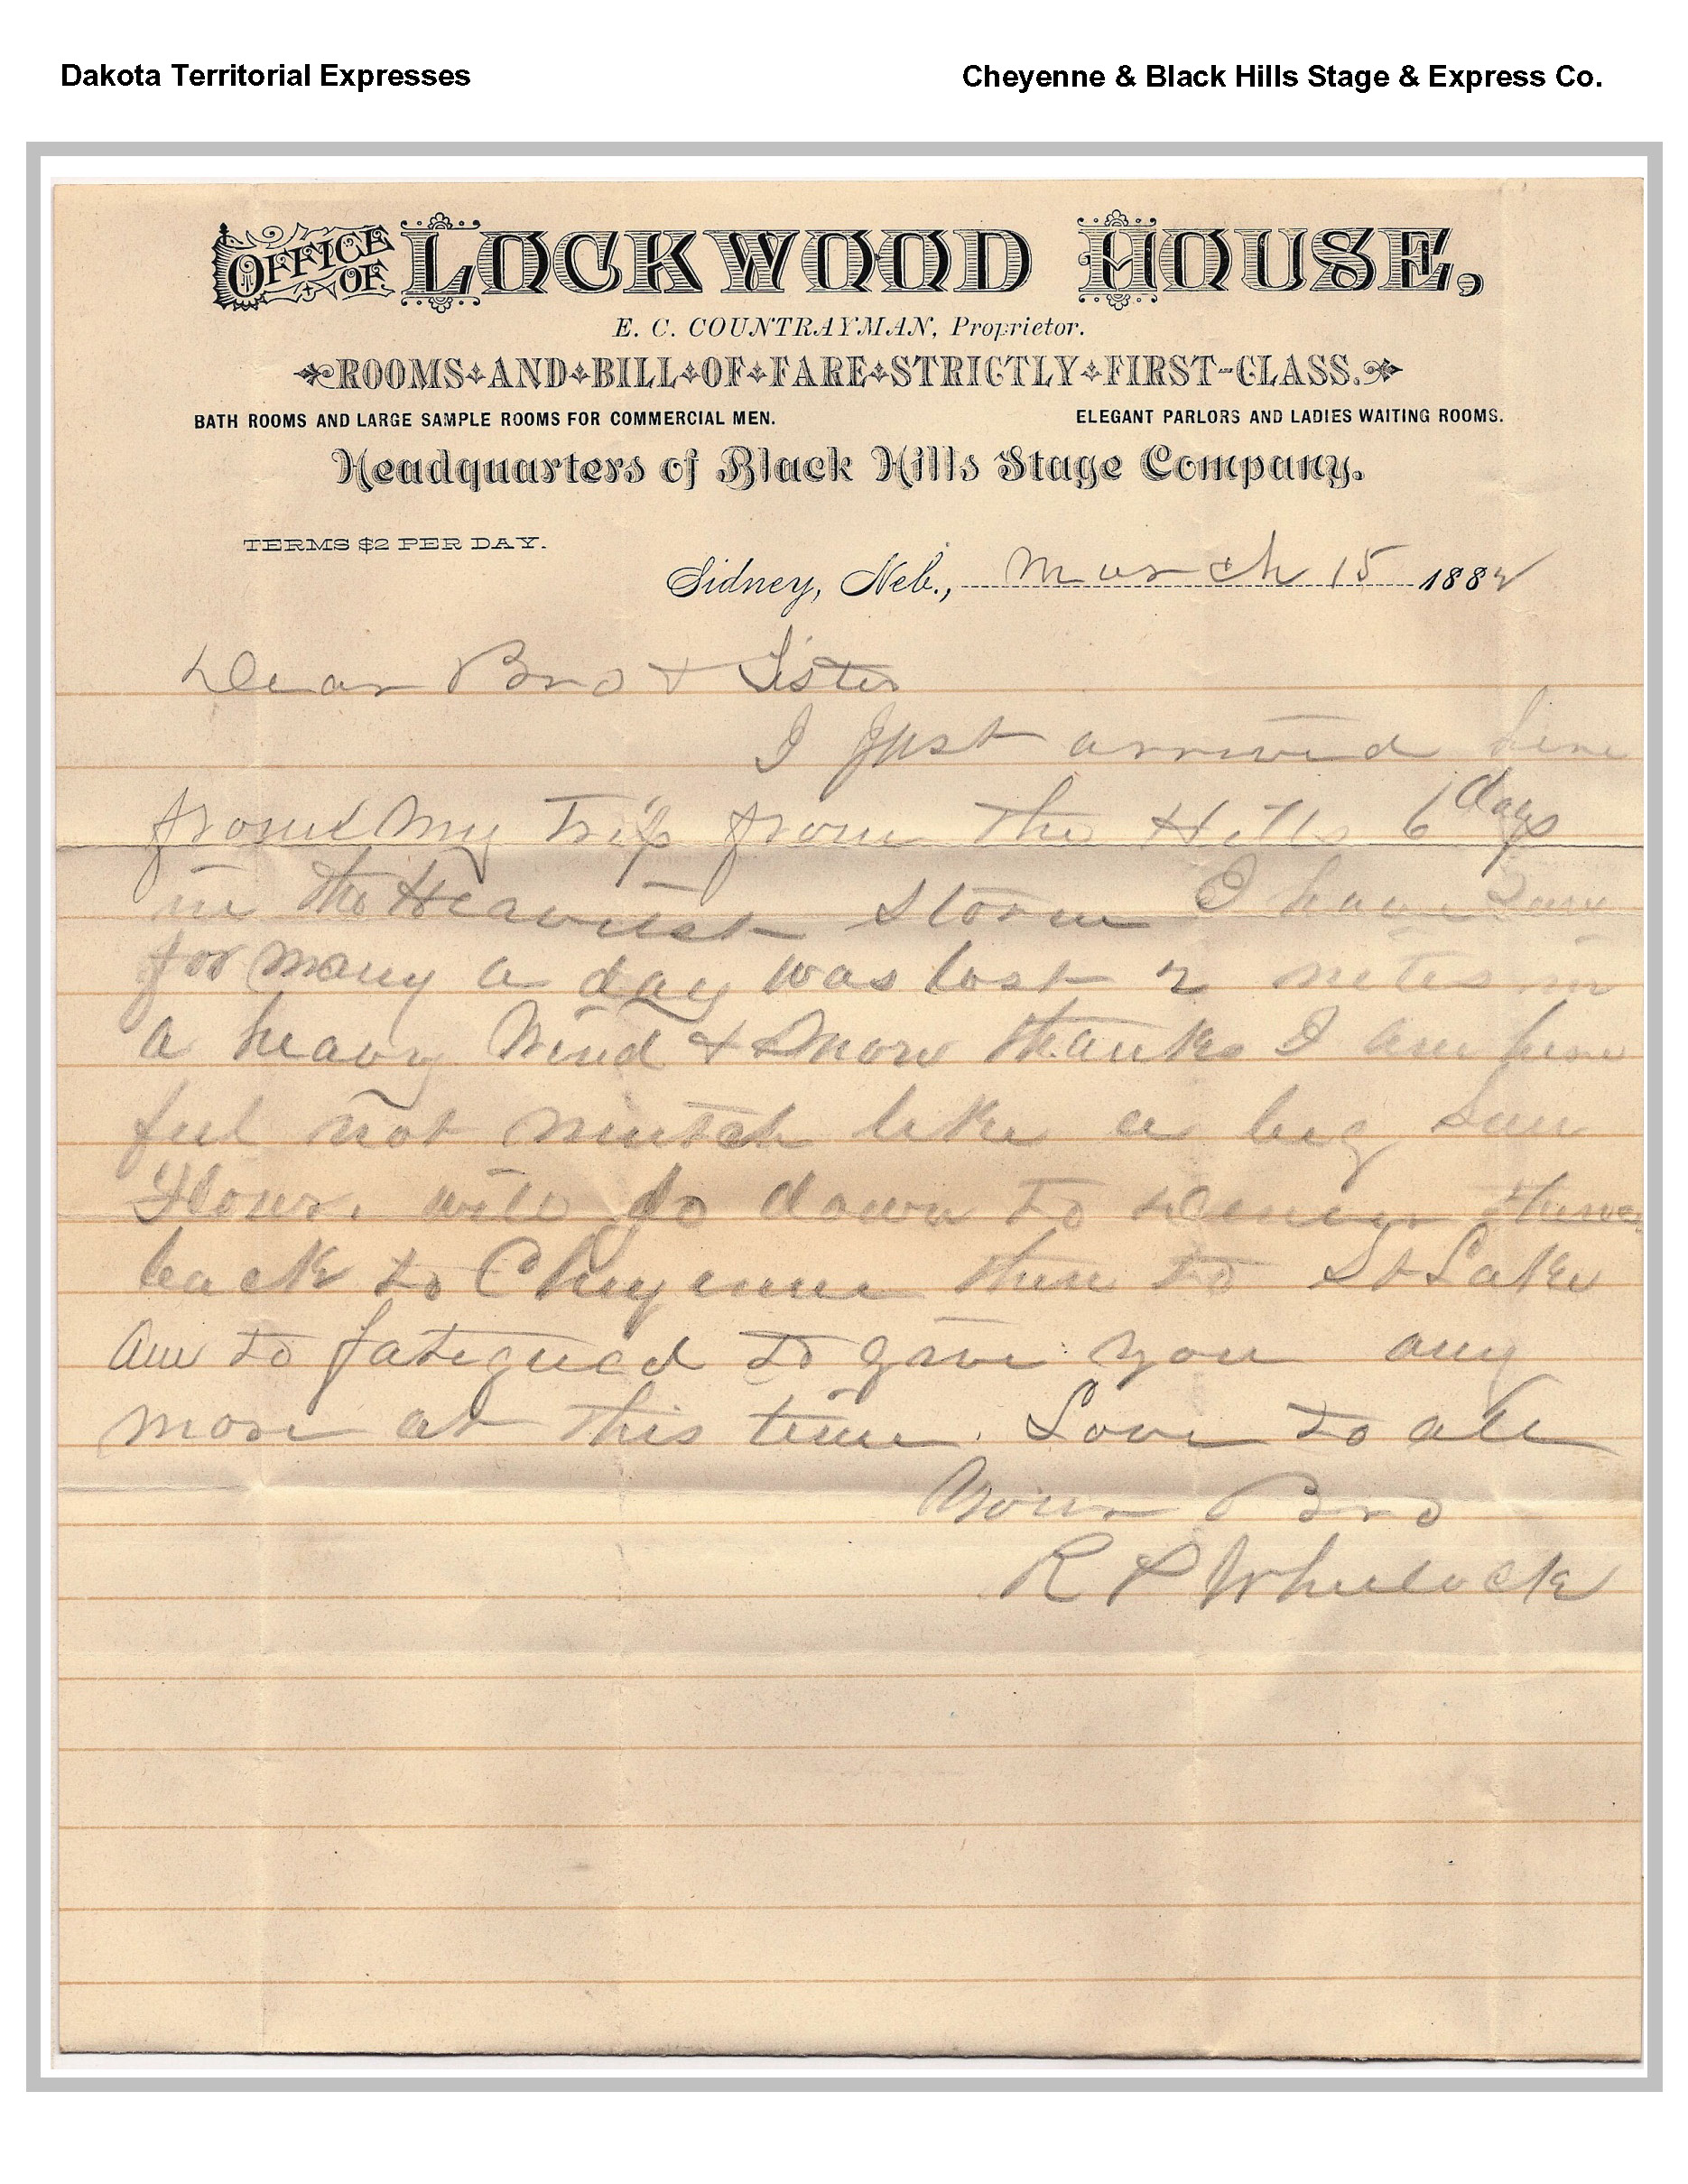 Dakota Territorial Expresses
Cheyenne & Black Hills Stage & Express Co.
OFFICE OF LOCKWOOD HOUSE,
E. C. COUNTRAYMAN, Proprietor.
ROOMS AND BILL OF FARE STRICTLY FIRST-CLASS.
BATH ROOMS AND LARGE SAMPLE ROOMS FOR COMMERCIAL MEN.
ELEGANT PARLORS AND LADIES WAITING ROOMS.
Headquarters of Black Hills Stage Company.
TERMS $2 PER DAY.
Sidney, Neb., March 15 1882
Dear Bro & Sister
I just arrived here
from my Trip from the Hills 6 days
in the Heaviest storm I have
for many a day was lost 2 nites in
a heavy Wind & Snow thanks I am here
feel not mutch like a big Sun
Flour. will go down to
back to Cheyenne then to St Lake
Am to fatigued to give you any
more at this time. Love to all
Your Bro
R P Wheelock